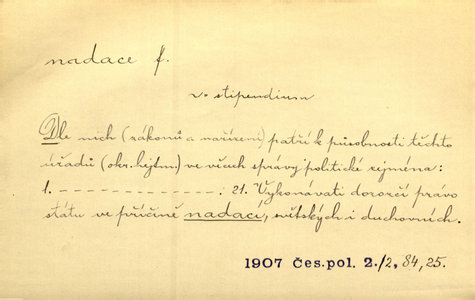 nadace f.
v. stipendium
Dle nich (zákonů a nařízení) patří k působnosti těchto
úřadů (okr. hejtm) ve věcech správy politické zejména:
1. – – – – – – – – – – – – – . 21. Vykonávati dozorčí právo
státu ve příčině nadací, světských i duchovních.
1907 Čes. pol. 2./2, 84, 25.